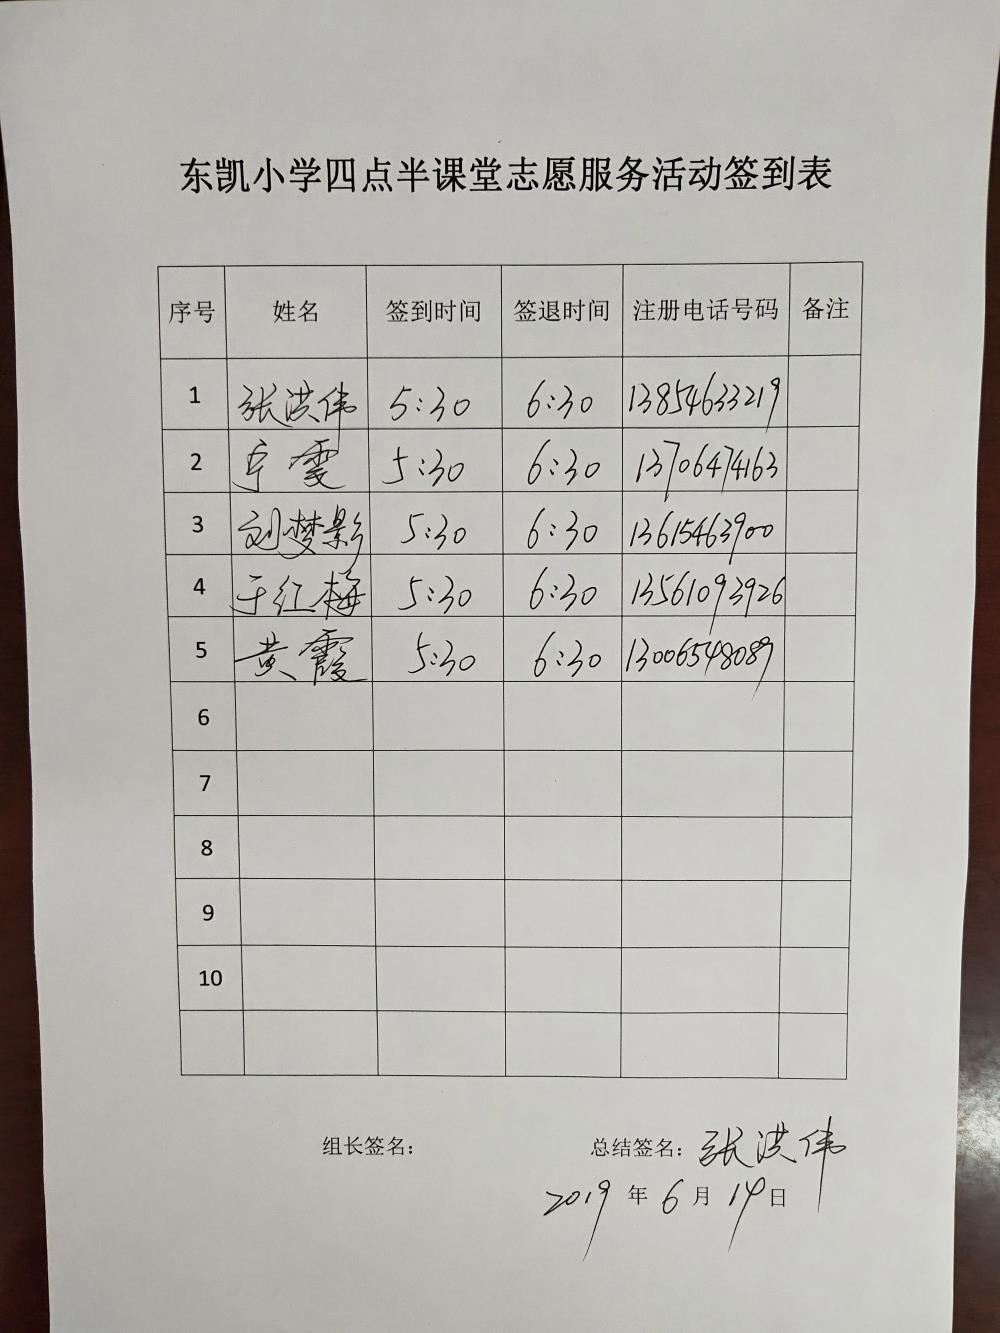 东凯小学四点半课堂志愿服务活动签到表
序号 姓名 签到时间 签退时间 注册电话号码 备注
1 张洪伟 5:30 6:30 13854633219
2 宁雯 5:30 6:30 13706474163
3 刘梦影 5:30 6:30 13615463900
4 于红梅 5:30 6:30 13561093926
5 黄霞 5:30 6:30 13006548089
6
7
8
9
10
组长签名: 总结签名: 张洪伟
2019 年 6 月 14 日